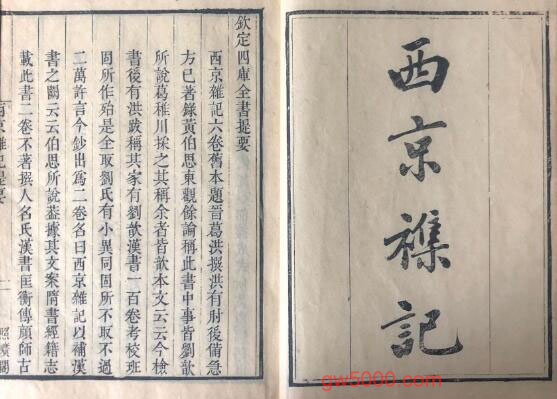 西京襍記
欽定四庫全書提要
西京雜記六卷舊本題晉葛洪撰洪有肘後備急
方已著錄黃伯思東觀餘論稱此書中事皆劉歆
所說葛稚川採之其稱余者皆歆本文云云今檢
書後有洪跋稱其家有劉歆漢書一百卷考校班
固所作殆是全取劉氏有小異同固所不取不過
二萬許言今鈔出爲二卷名曰西京雜記以補漢
書之闕云云伯思所說葢據其文案隋書經籍志
載此書二卷不著撰人名氏漢書匡衡傳顏師古
京雜記提要 一 照曠閣
gw5000.com